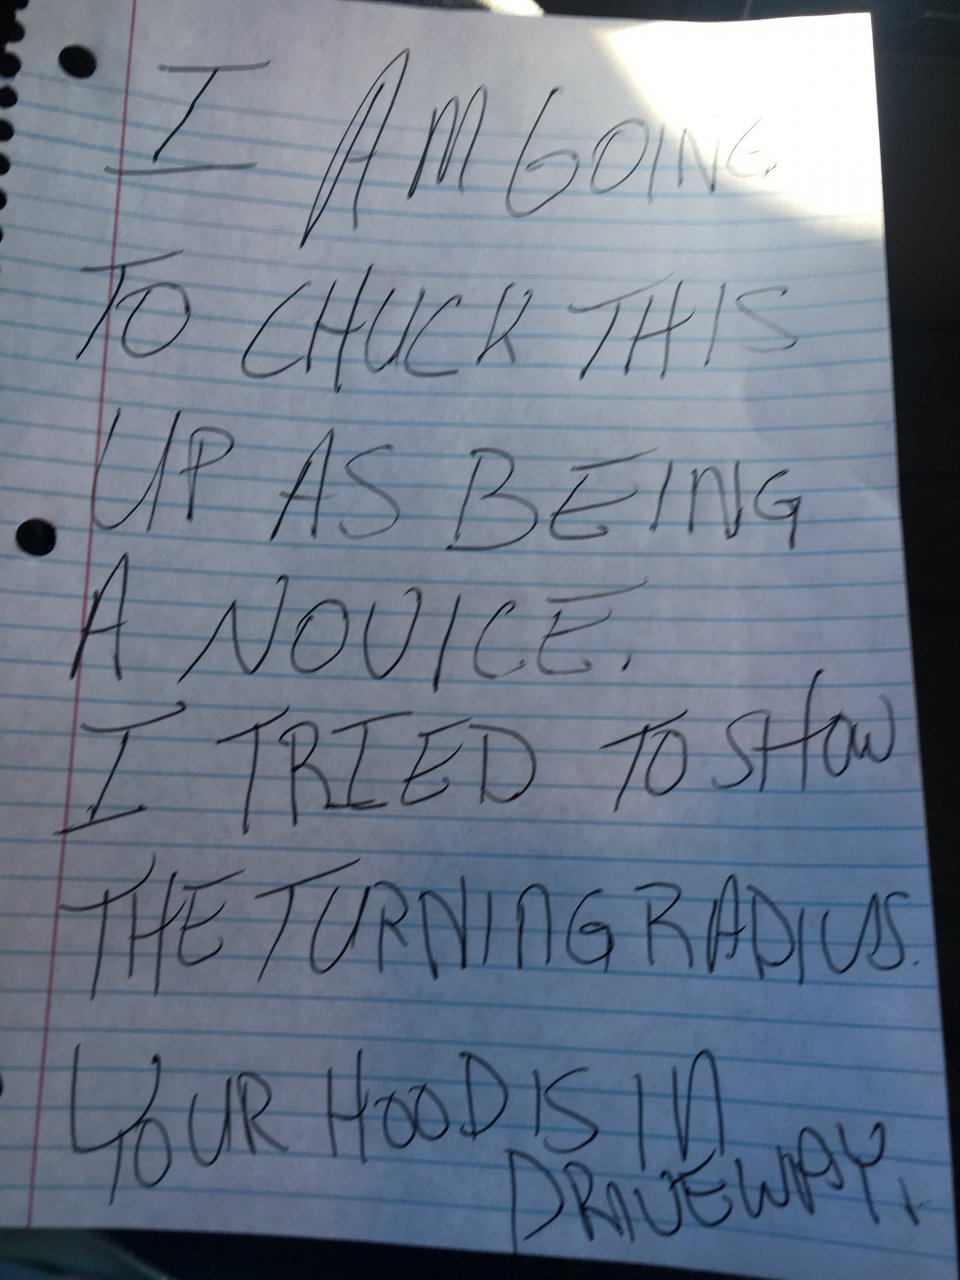 I AM GOING
TO CHUCK THIS
UP AS BEING
A NOVICE.
I TRIED TO SHOW
THE TURNING RADIUS.
YOUR HOOD IS IN
DRIVEWAY.